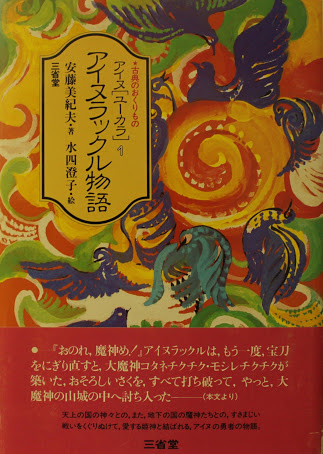 ★古典のおくりもの
アイヌ[ユーカラ]1
アイヌラックル物語
安藤美紀夫・著 水四澄子・絵
三省堂
●『おのれ、魔神め!』アイヌラックルは、もう一度、宝刀
をにぎり直すと、大魔神コタネチクチク・モシレチクチクが
築いた、おそろしいさくを、すべて打ち破って、やっと、大
魔神の山城の中へ討ち入った――(本文より)
天上の国の神々との、また、地下の国の魔神たちとの、すさまじい
戦いをくぐりぬけて、愛する姫神と結ばれる、アイヌの勇者の物語。
三省堂